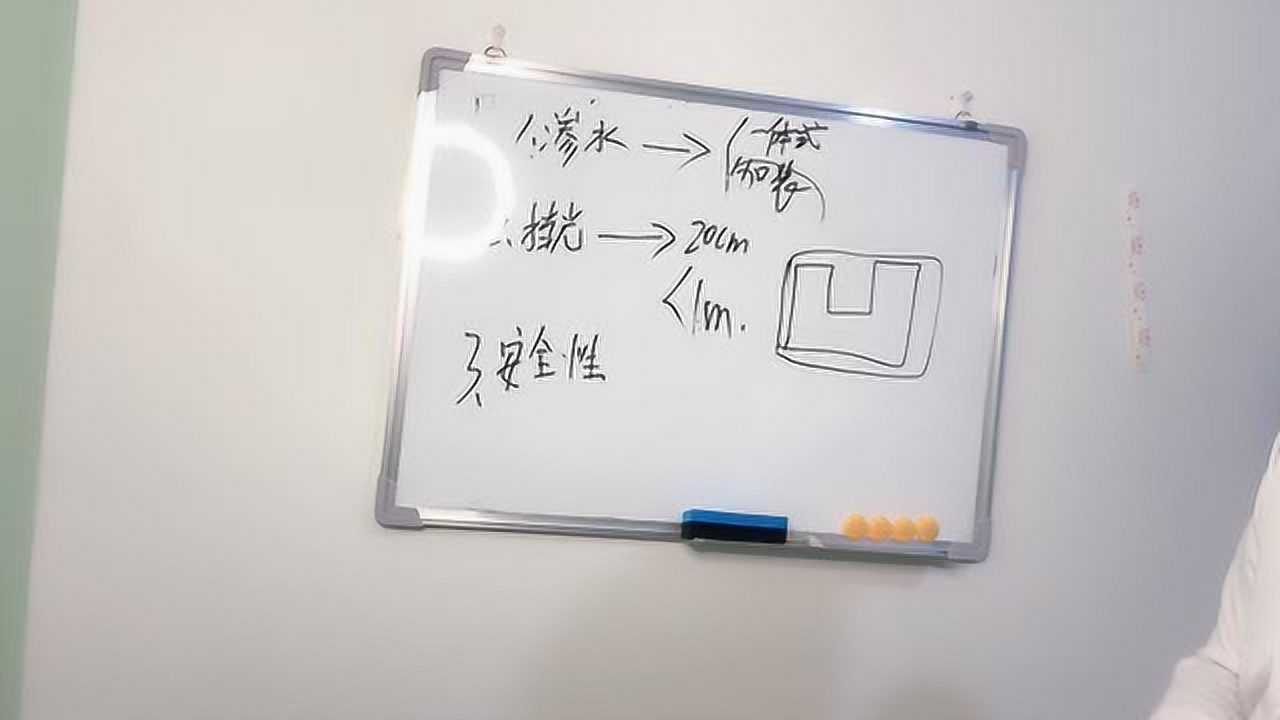 1、渗水 → 一体式
知装
2、挡光 → 20cm
<1m.
3、安全性